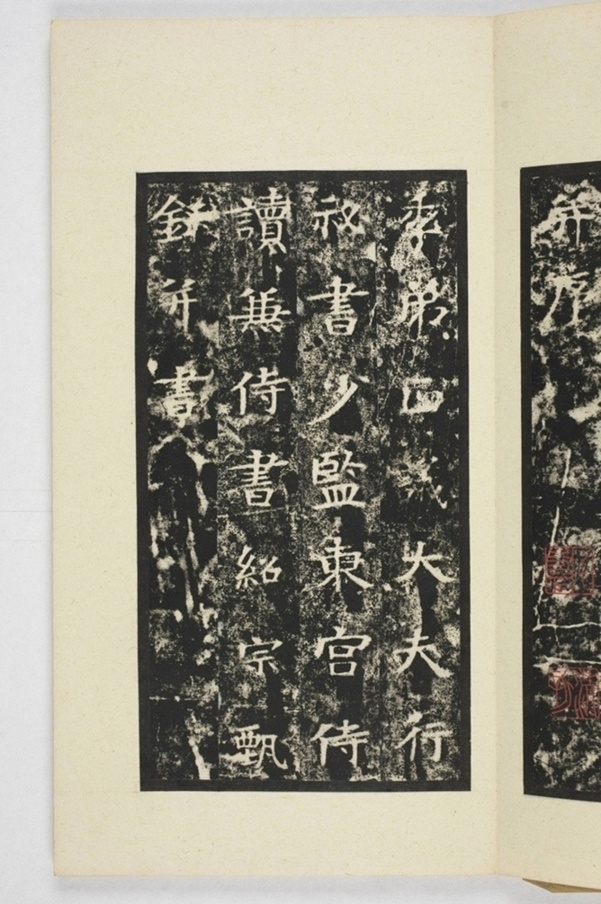 并序
季弟正議大夫行
祕書少監東宮侍
讀兼侍書紹宗甄
錄并書